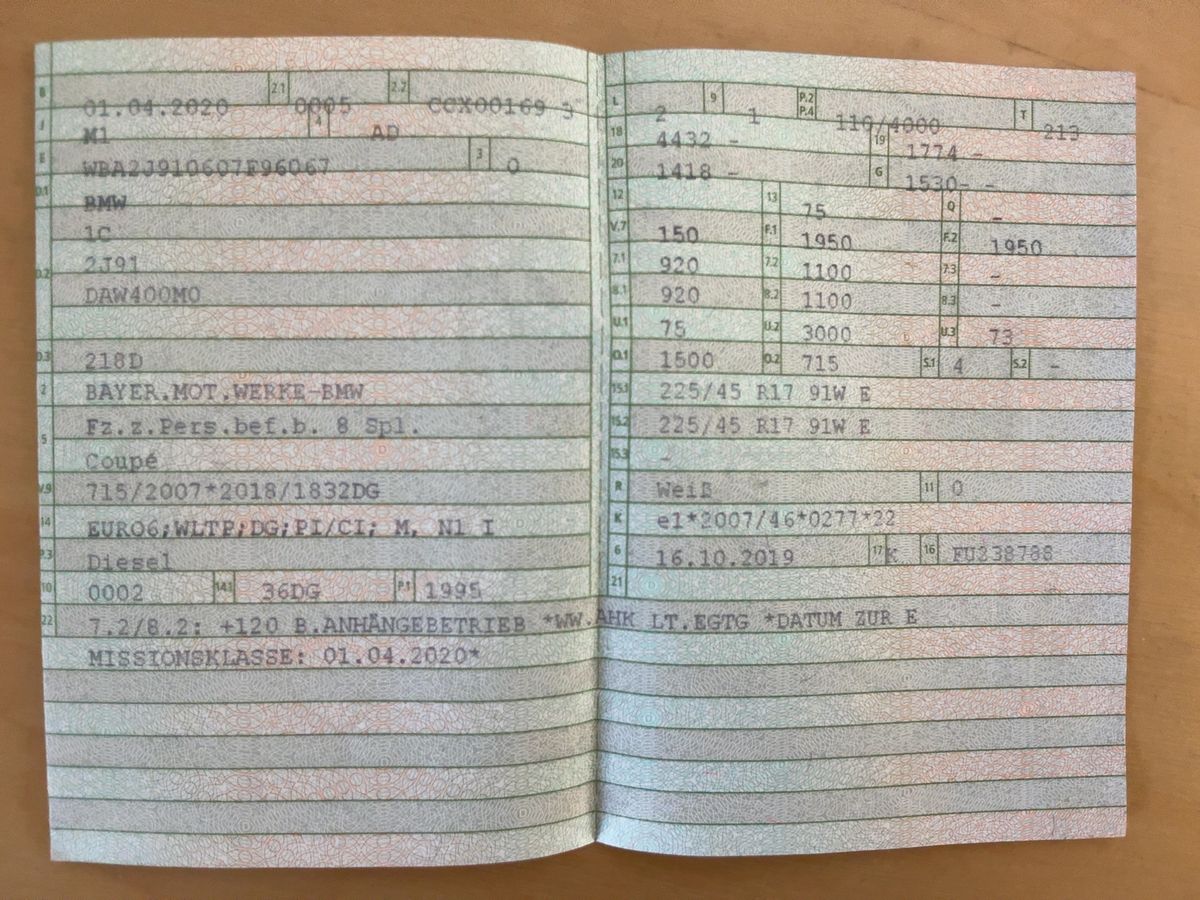 B 01.04.2020 2.1 0005 2.2 CCX00169 3
J M1 4 AD
E WBA2J910607F96067 3 0
D.1 BMW
1C
D.2 2J91
DAW400M0
D.3 218D
2 BAYER.MOT.WERKE-BMW
5 Fz.z.Pers.bef.b. 8 Spl.
Coupé
V.9 715/2007*2018/1832DG
14 EURO6;WLTP;DG;PI/CI; M, N1 I
P.3 Diesel
10 0002 14.1 36DG P.1 1995
L 2 9 1 P.2 P.4 110/4000 T 213
18 4432 - 19 1774 -
20 1418 - G 1530- -
12 13 75 Q -
V.7 150 F.1 1950 F.2 1950
7.1 920 7.2 1100 7.3 -
8.1 920 8.2 1100 8.3 -
U.1 75 U.2 3000 U.3 73
O.1 1500 O.2 715 S.1 4 S.2 -
15.1 225/45 R17 91W E
15.2 225/45 R17 91W E
15.3 -
R Weiß 11 0
K e1*2007/46*0277*22
6 16.10.2019 17 K 16 FU238788
21
22 7.2/8.2: +120 B.ANHÄNGEBETRIEB *WW.AHK LT.EGTG *DATUM ZUR E
MISSIONSKLASSE: 01.04.2020*